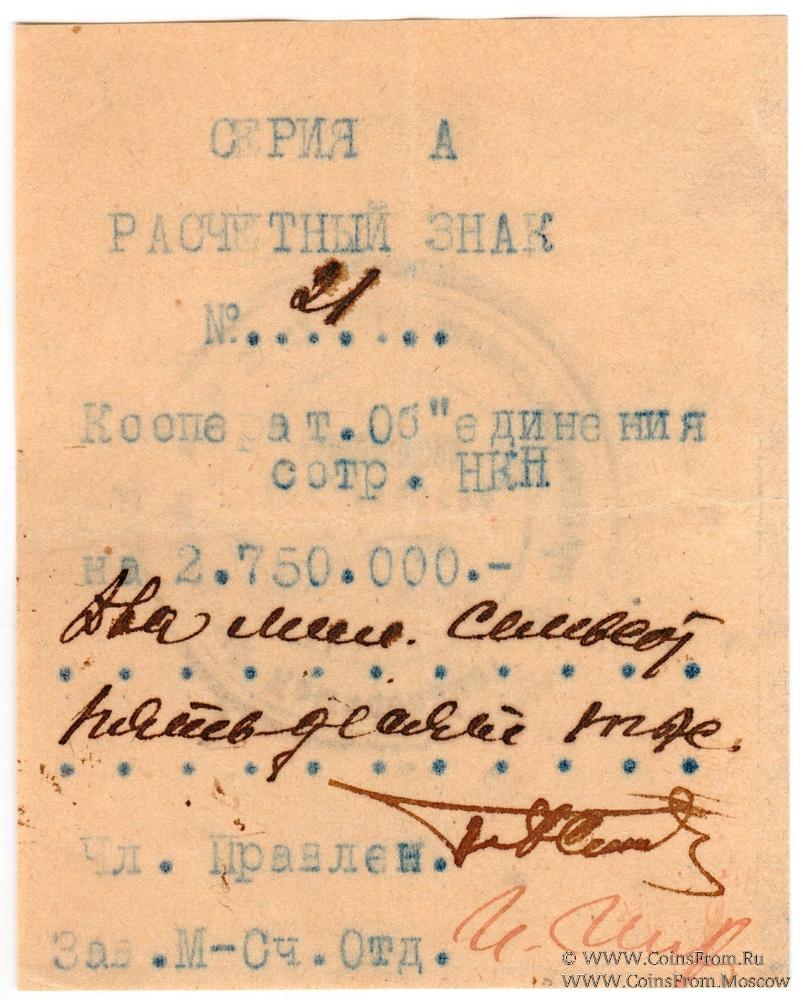 СЕРИЯ А
РАСЧЕТНЫЙ ЗНАК
№. 21
Кооперат.Об"единения
сотр. НКН
на 2.750.000.-
Два мил. семьсот
пятьдесят тыс.
Чл. Правлен.
Зав.М-Сч.Отд.
© WWW.CoinsFrom.Ru
WWW.CoinsFrom.Moscow